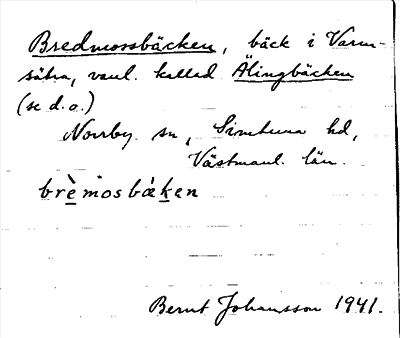 Bredmossbäcken, bäck i Varm-
sätra, vanl. kallad Älingbäcken
(se d.o.)
Norrby sn, Simtuna hd,
Västmanl. län.
brèmosbæken
Bernt Johansson 1941.